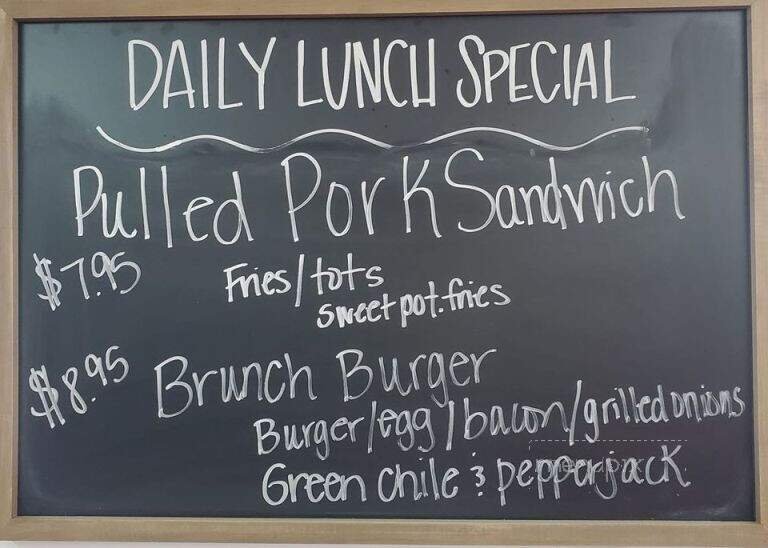 DAILY LUNCH SPECIAL
Pulled Pork Sandwich
$7.95 Fries/tots
sweet pot. fries
$8.95 Brunch Burger
Burger/egg/bacon/grilled onions
Green chile & pepperjack